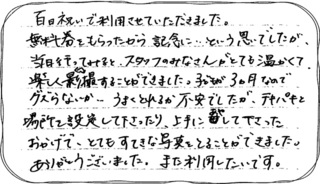 百日祝いで利用させていただきました。
無料券をもらったから記念に…という思いでしたが、
当日を行ってみると、スタッフのみなさんがとても温かくて
楽しく撮影することができました。子どもが3ヶ月なので
グズらないか…うまくとれるか不安でしたが、テキパキと
場所を設定して下さったり、上手に して下さった
おかげで、とてもすてきな写真をとることができました。
ありがとうございました。また利用したいです。